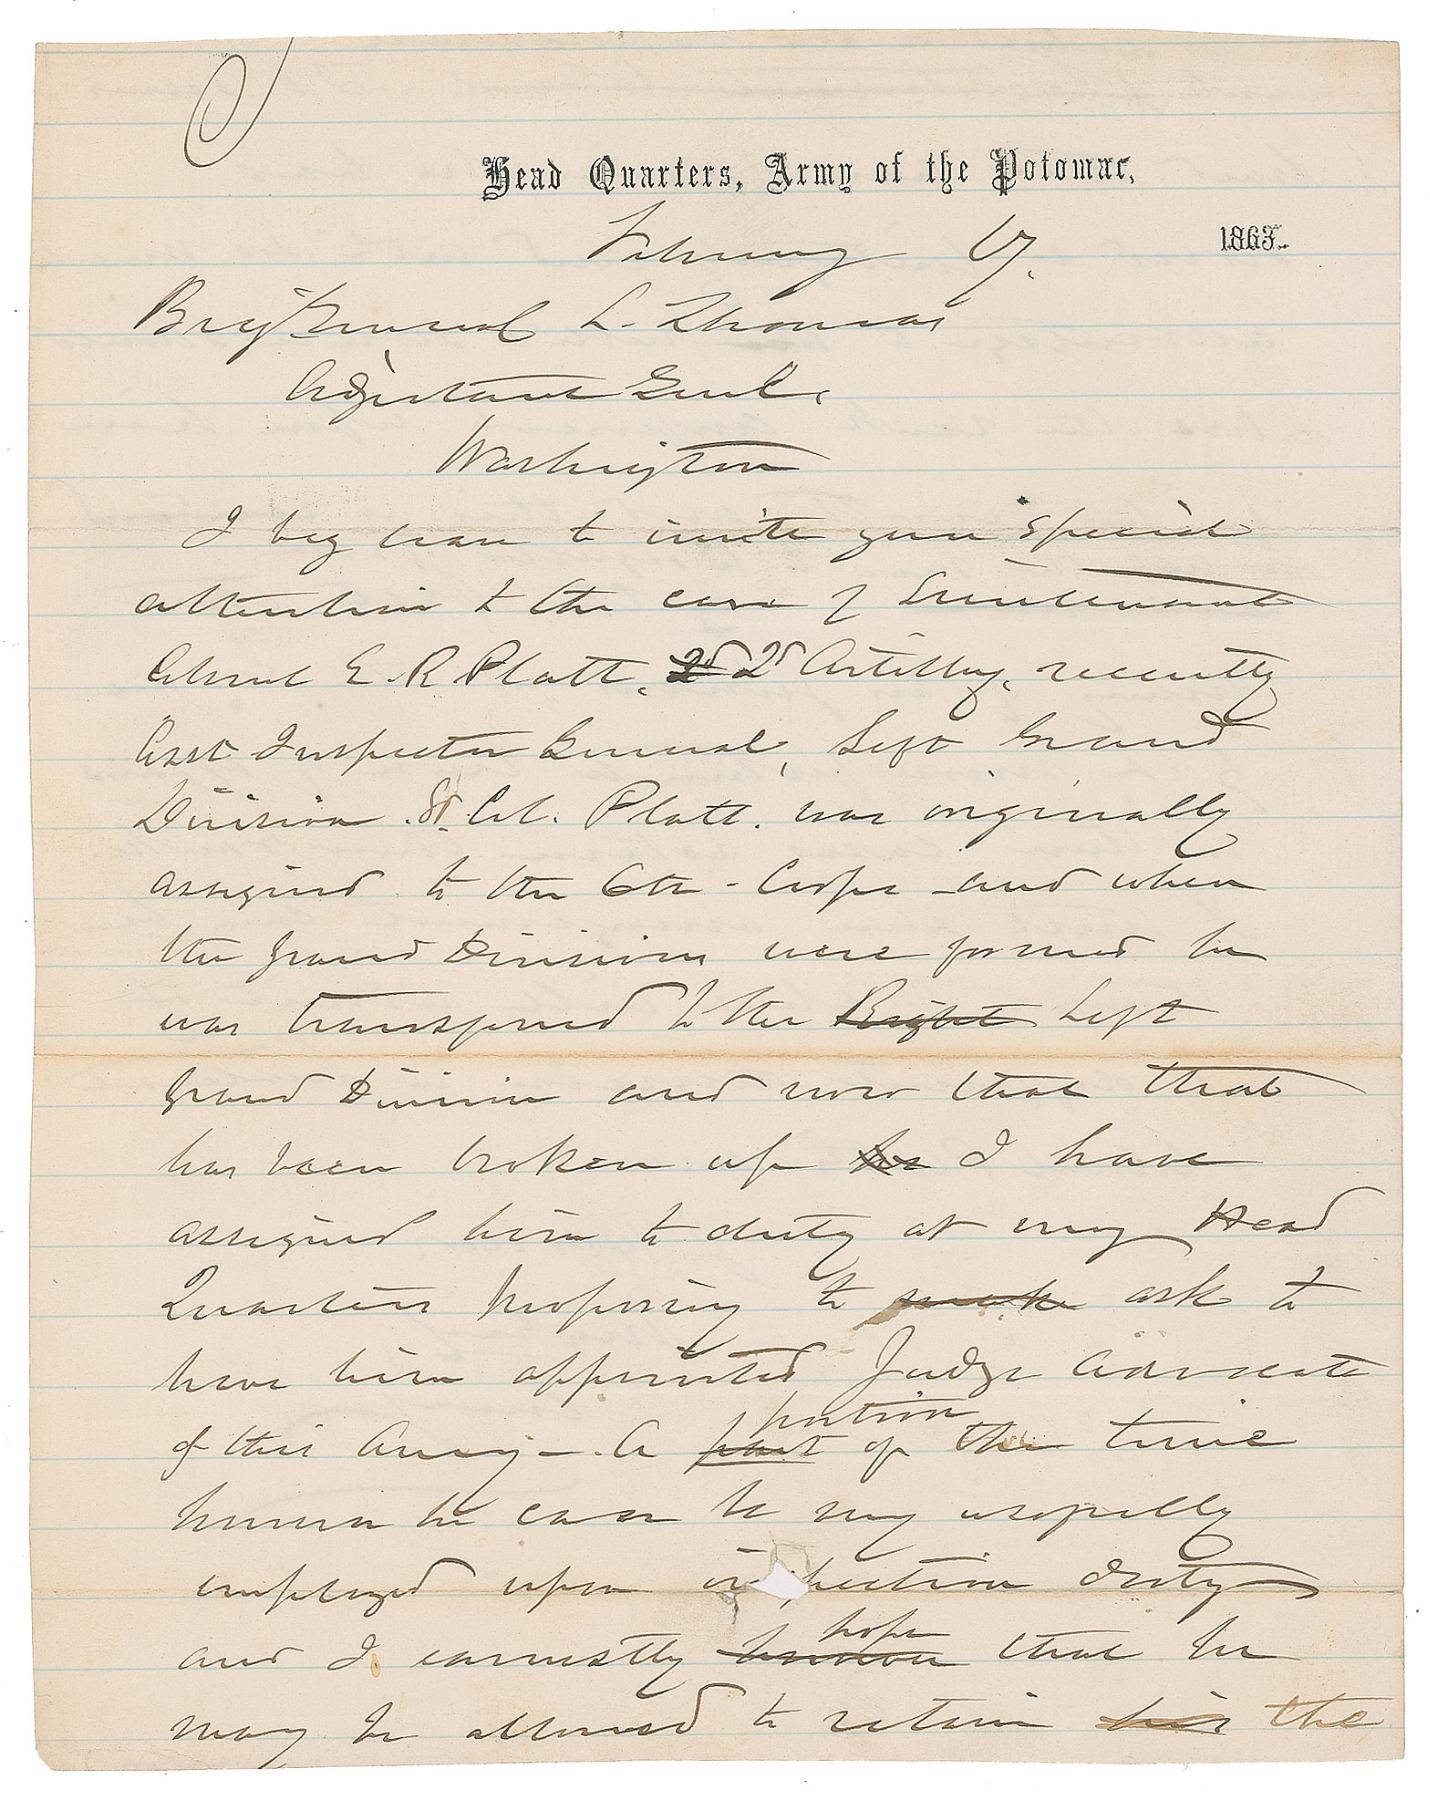 Head Quarters, Army of the Potomac,
February 17. 1863.
Brig General L. Thomas
Adjutant Genl.
Washington
I beg leave to invite your special
attention to the case of Lieutenant
Colonel E. R Platt, 2d 2d Artillery, recently
Asst Inspector General, Left Grand
Division. Lt. Col. Platt. was originally
assigned to the 6th - Corps - and when
the Grand Divisions were formed he
was transferred to the Right Left
Grand Division and now that that
has been broken up he I have
assigned him to duty at my Head
Quarters proposing to make ask to
have him appointed Judge Advocate
portion
of this Army - A part of the time
he can be usefully
employed upon inspection duty
hope
and I earnestly that he
may be allowed to retain his the